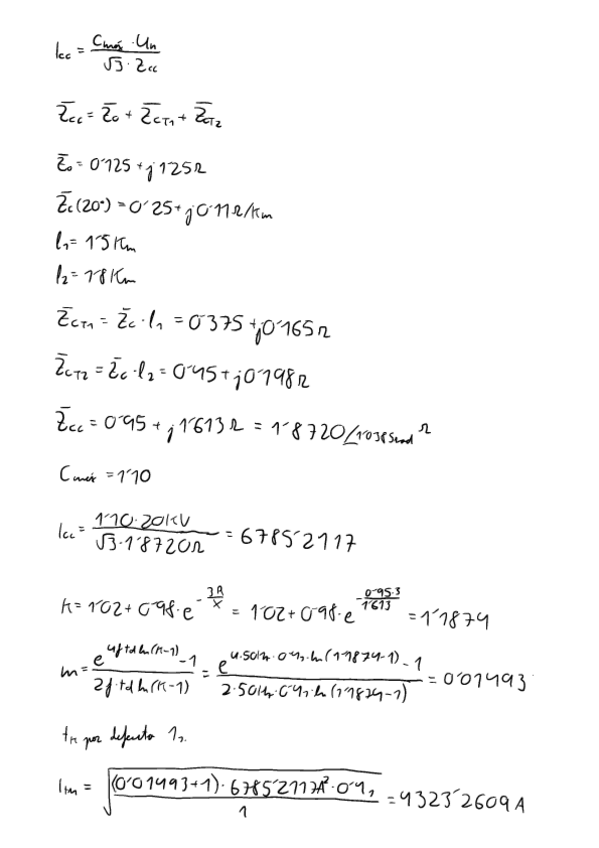 Icc = Cmáx · Un / √3 · Zcc
Z̄cc = Z̄o + Z̄cT1 + Z̄cT2
Z̄o = 0'125 + j 1'25Ω
Z̄c (20°) = 0'25 + j0'11Ω/Km
l1 = 1'5 Km
l2 = 1'8 Km
Z̄cT1 = Z̄c · l1 = 0'375 + j0'165Ω
Z̄cT2 = Z̄c · l2 = 0'45 + j0'198Ω
Z̄cc = 0'95 + j 1'613Ω = 1'8720 ∠1'0385rad Ω
Cmáx = 1'10
Icc = 1'10 · 20KV / √3 · 1'8720Ω = 6785'2117
K = 1'02 + 0'98 · e^(-3R/X) = 1'02 + 0'98 · e^(-0'95·3/1'613) = 1'1874
m = e^(4f td ln(K-1)) - 1 / 2f · td ln(K-1) = e^(4·50Hz·0'4s·ln(1'1874-1)) - 1 / 2·50Hz·0'4s·ln(1'1874-1) = 0'01493
tk por defecto 1s.
Itm = √((0'01493+1) · 6785'2117A² · 0'4s / 1) = 4323'2609 A